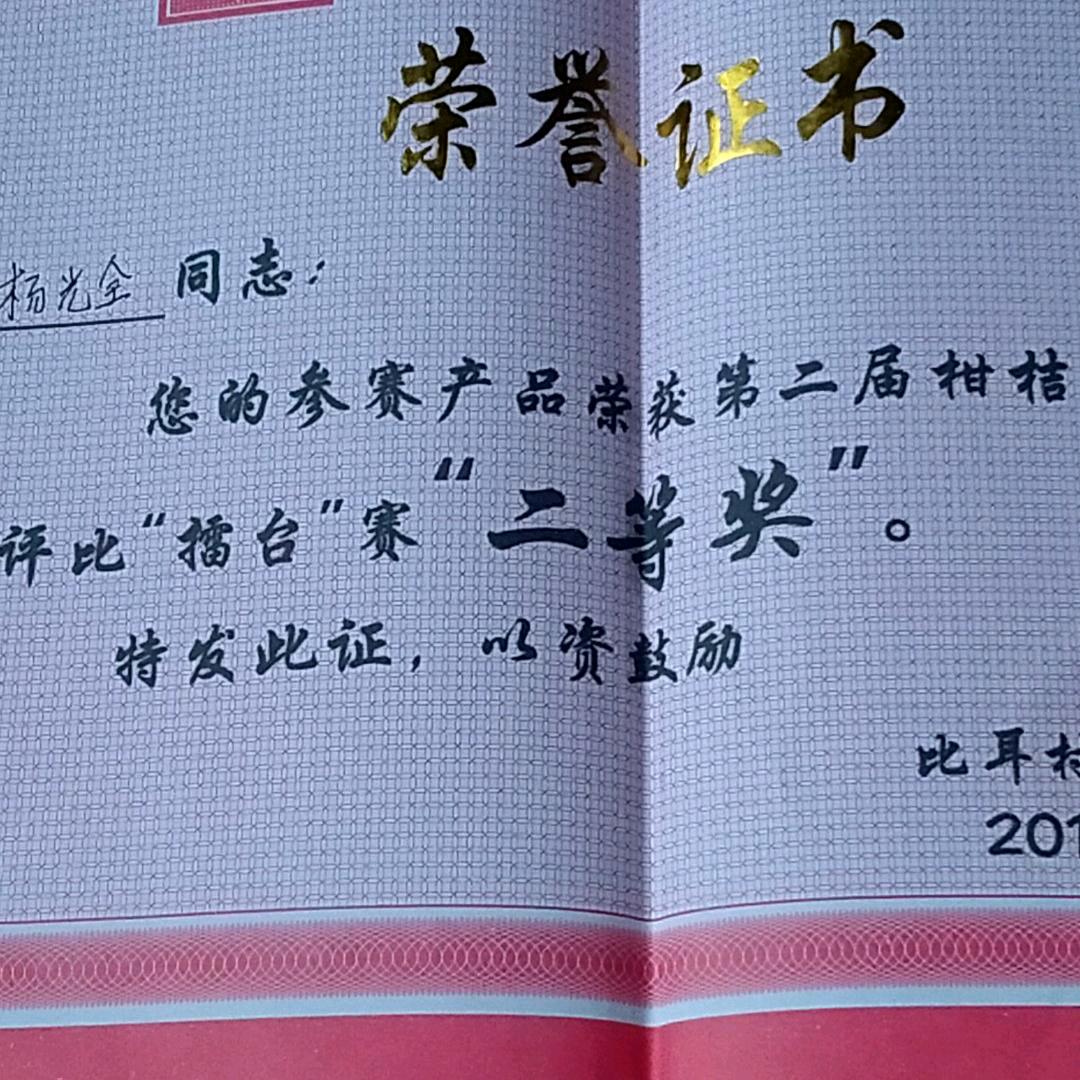 荣誉证书
杨光全 同志：
您的参赛产品荣获第二届柑桔
评比“擂台”赛“二等奖”。
特发此证，以资鼓励
比耳村
201